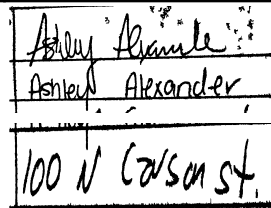 Ashley Alexander
Ashley Alexander
100 N Carson St.